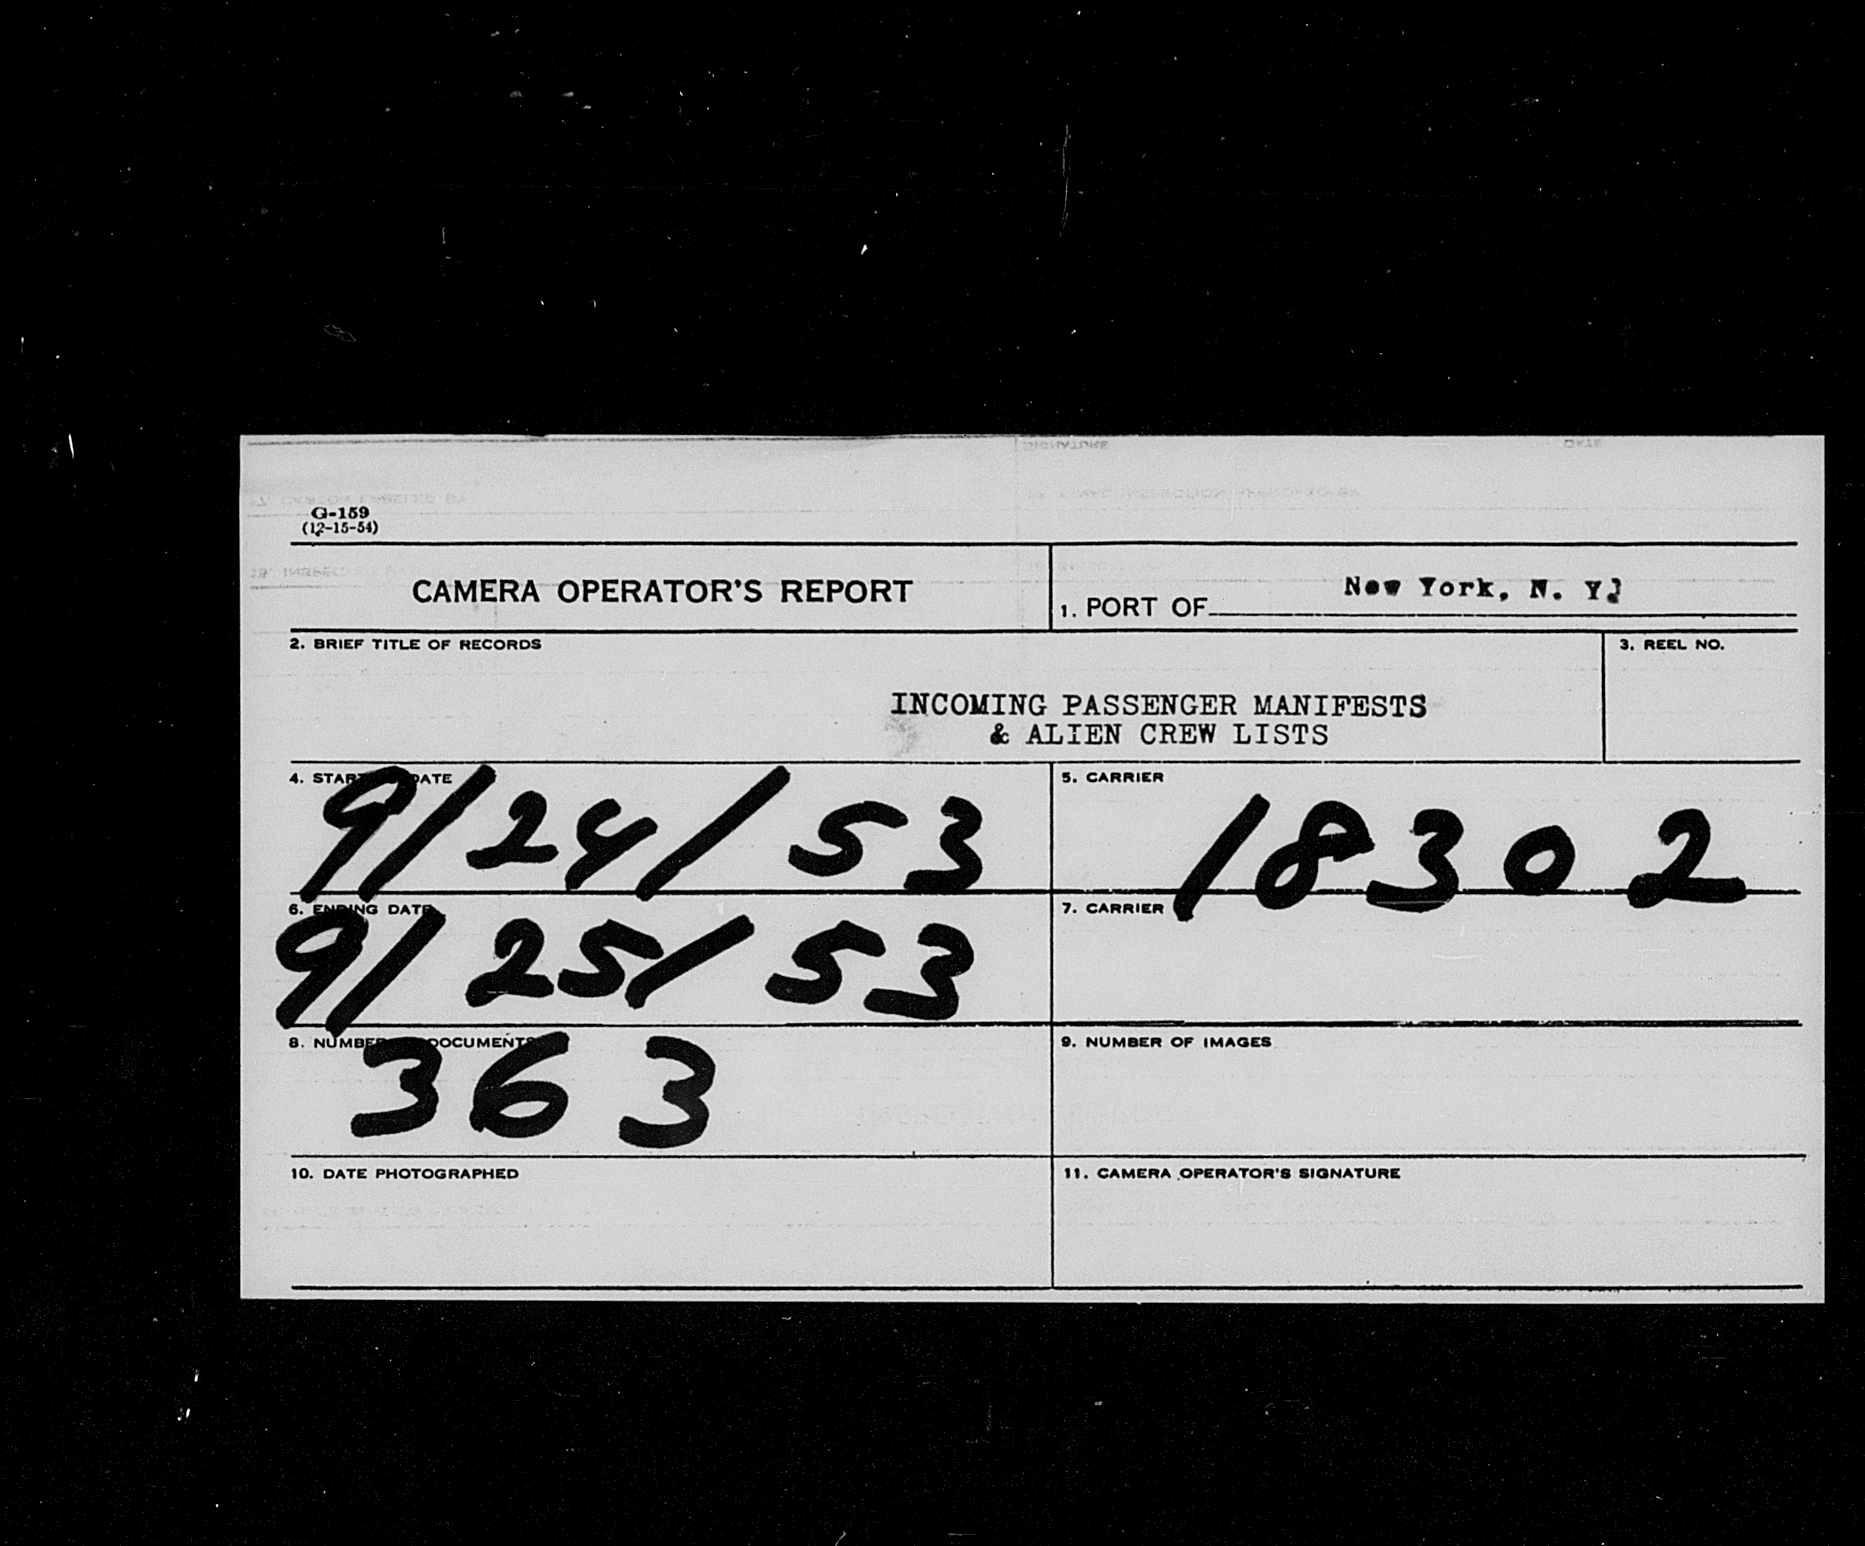 G-159
(12-15-54)
CAMERA OPERATOR'S REPORT
1. PORT OF New York, N. Y.
2. BRIEF TITLE OF RECORDS
3. REEL NO.
INCOMING PASSENGER MANIFESTS
& ALIEN CREW LISTS
4. STARTING DATE
9/24/53
5. CARRIER
18302
6. ENDING DATE
9/25/53
7. CARRIER
8. NUMBER OF DOCUMENTS
363
9. NUMBER OF IMAGES
10. DATE PHOTOGRAPHED
11. CAMERA OPERATOR'S SIGNATURE